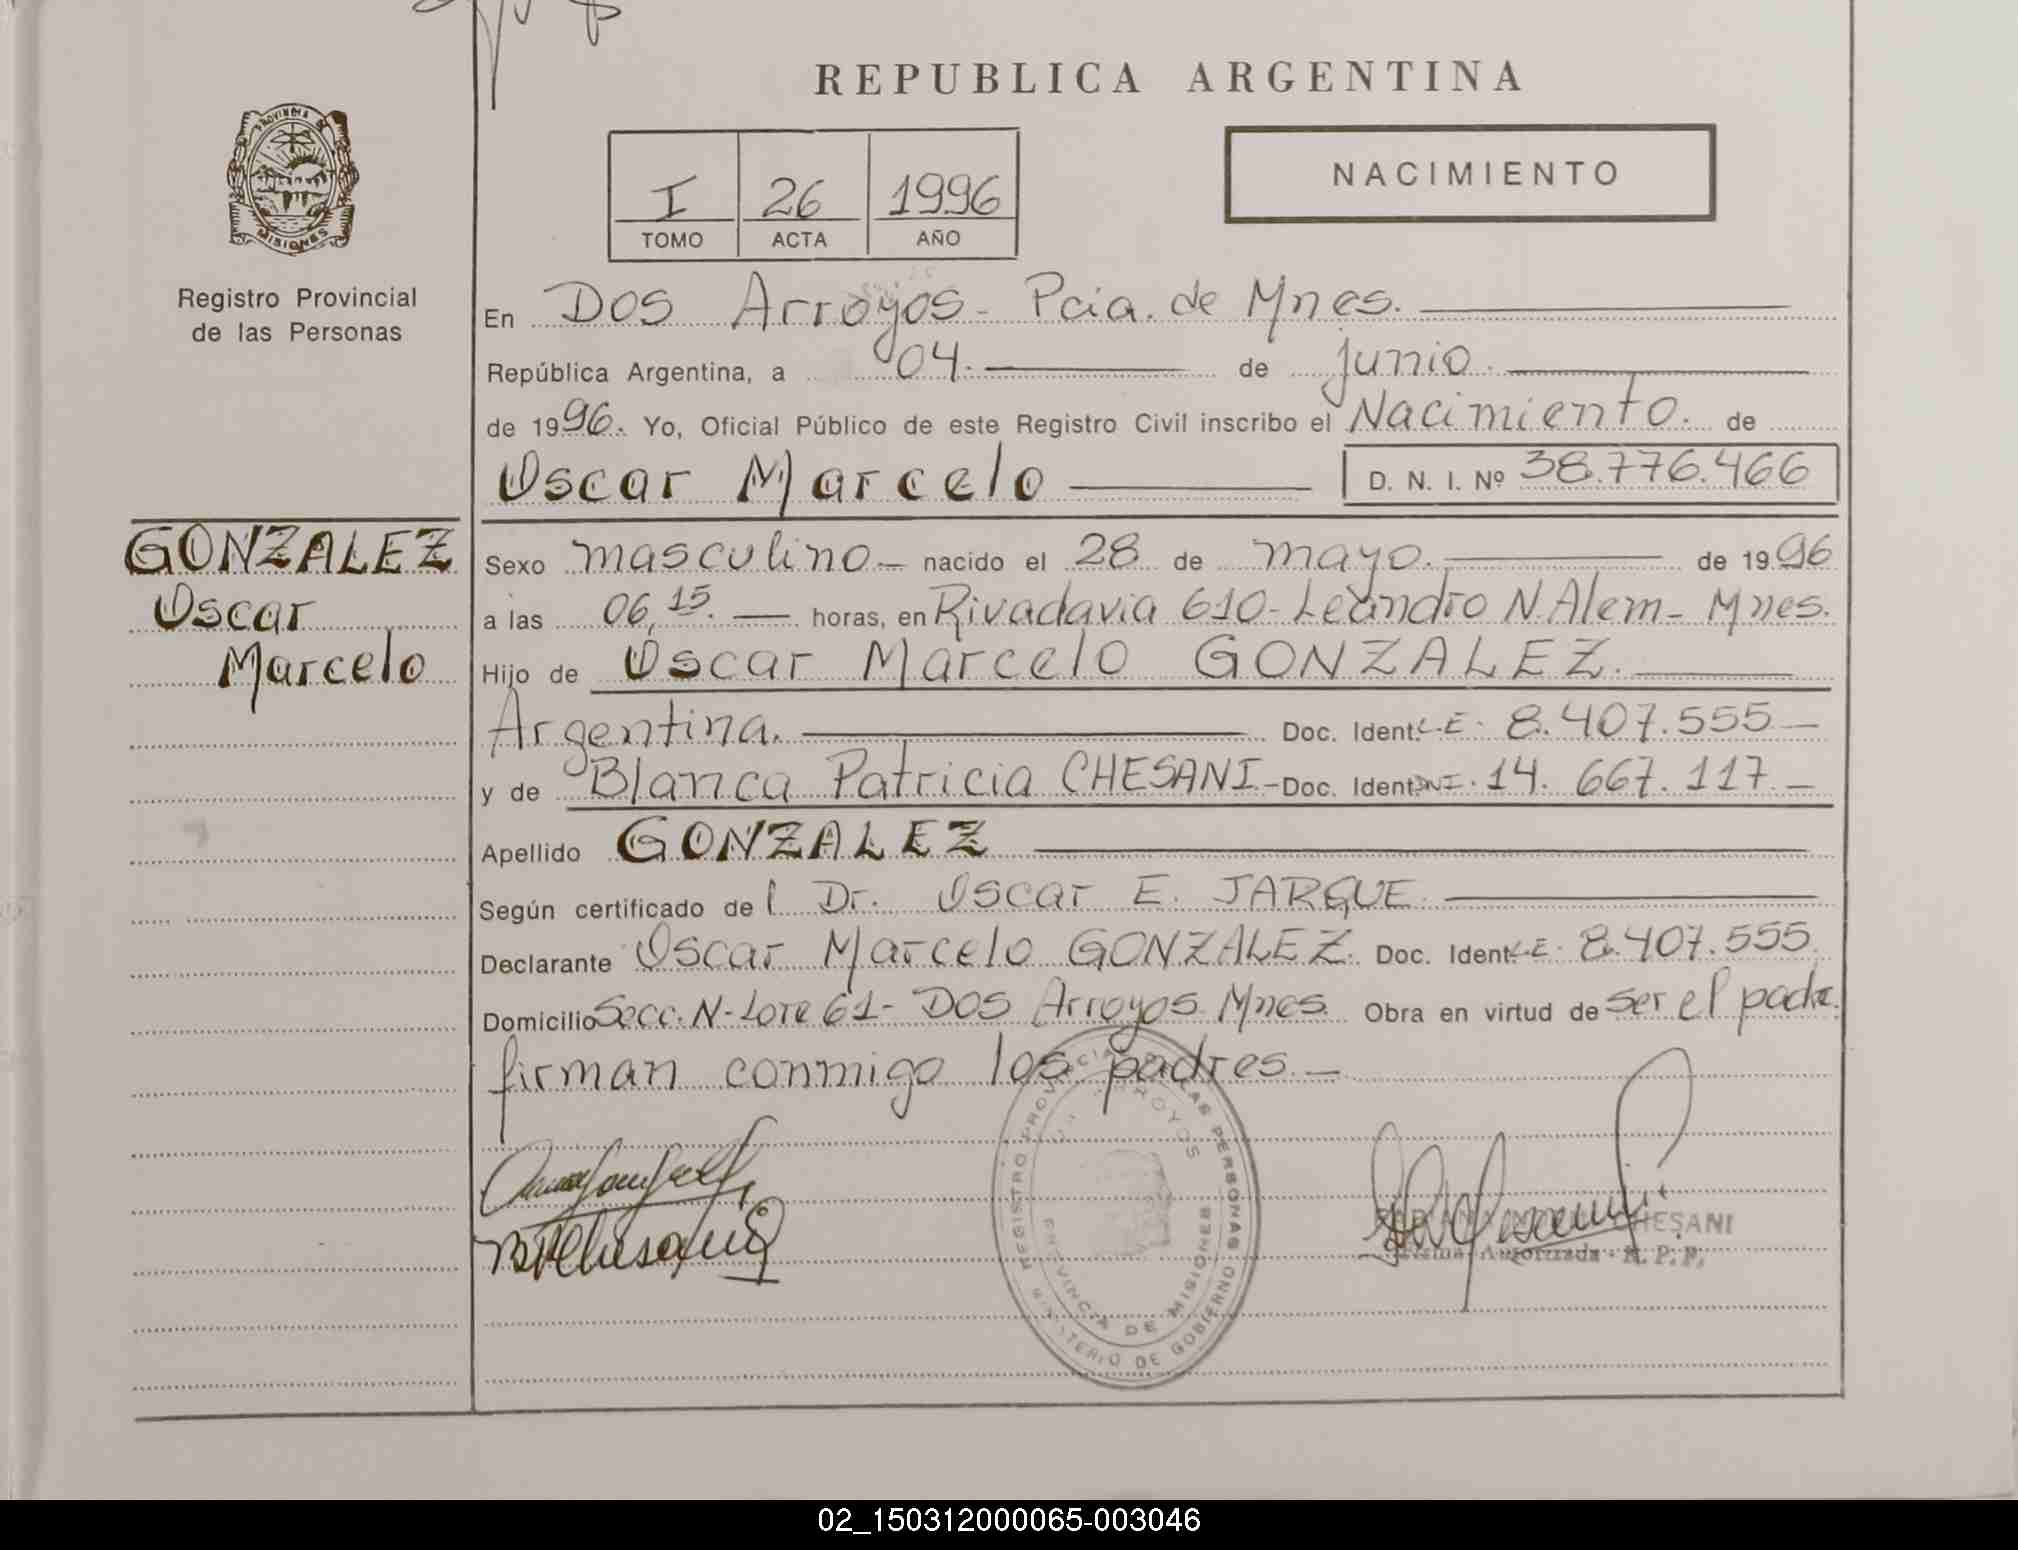 REPUBLICA ARGENTINA
PROVINCIA DE
MISIONES
Registro Provincial
de las Personas
I 26 1996
TOMO ACTA AÑO
NACIMIENTO
En Dos Arroyos - Pcia. de Mnes.
República Argentina, a 04. de junio.
de 1996. Yo, Oficial Público de este Registro Civil inscribo el Nacimiento. de
Oscar Marcelo D. N. I. Nº 38.776.466
GONZALEZ
Oscar
Marcelo
Sexo masculino - nacido el 28 de mayo. de 1996
a las 06,15. horas, en Rivadavia 610 - Leandro N. Alem - Mnes.
Hijo de Oscar Marcelo GONZALEZ.
Argentina. Doc. Ident. L.E. 8.407.555 -
y de Blanca Patricia CHESANI - Doc. Ident. DNI. 14.667.117. -
Apellido GONZALEZ
Según certificado del Dr. Oscar E. JARQUE
Declarante Oscar Marcelo GONZALEZ. Doc. Ident. L.E. 8.407.555.
Domicilio Secc. N - Lote 61 - Dos Arroyos Mnes. Obra en virtud de ser el padre.
firman conmigo los padres. -
REGISTRO PROVINCIAL DE LAS PERSONAS
ARROYOS
PROVINCIA DE MISIONES
MINISTERIO DE GOBIERNO
CHESANI
Firma Autorizada - R. P. P.
02_150312000065-003046